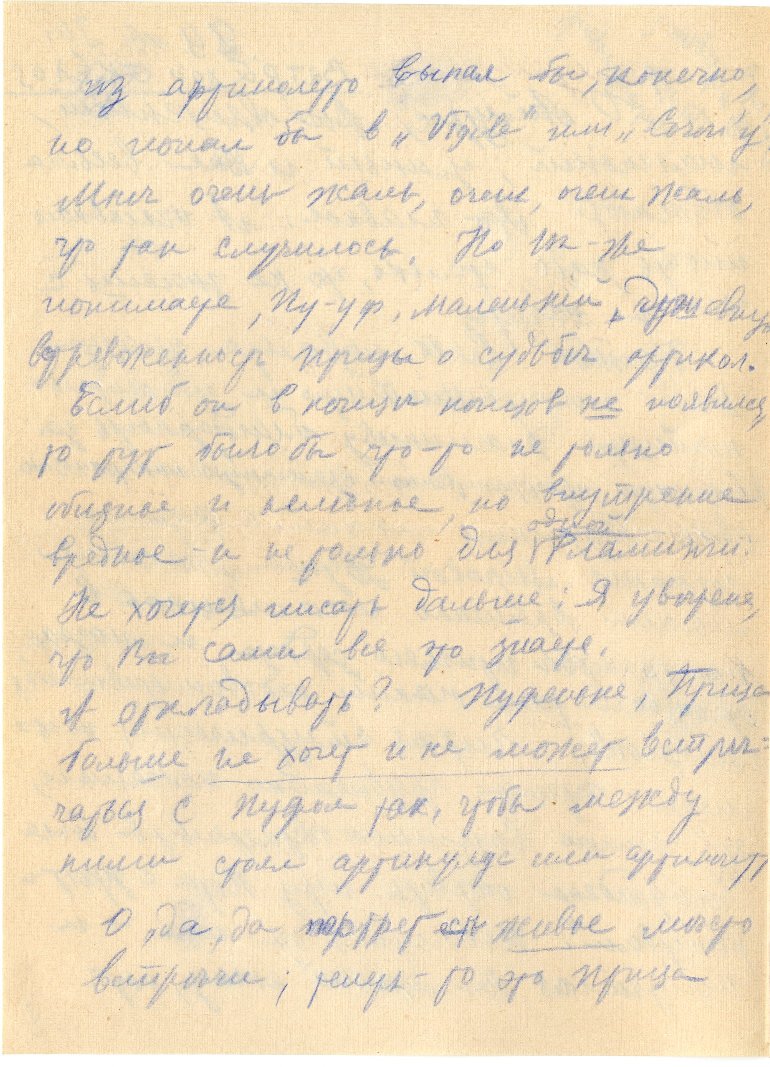 из артиколетто выпал бы, конечно,
но попал бы в „Vigile" или „
Мнѣ очень жаль, очень, очень жаль,
что так случилось. Но Вы-же
понимаете, Пу-уф, маленький,
встревоженность Птицы о судьбѣ артикол.
Еслиб он в концѣ концов не появился,
то тут было бы что-то не только
обидное и нелѣпное, но внутренне
вредное – и не только для одной Фламинги.
Не хочется писать дальше; Я увѣрена,
что Вы сами все это знаете.
А откладывать? Пуфеньке, Птица
больше не хочет и не может встрѣ=
чаться с Пуфом так, чтобы между
ними стоял или
О, да, да портрет есть живое мѣсто
встрѣчи; теперь-то это Птица